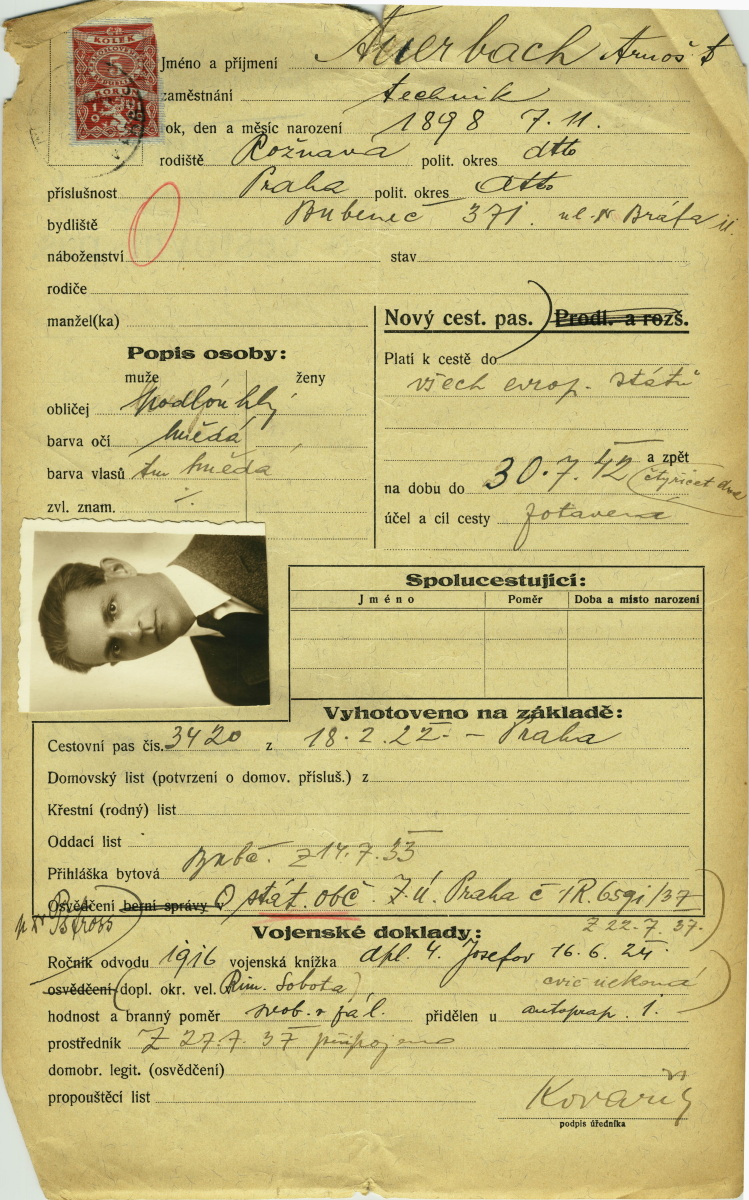 KOLEK
5
KORUN
Jméno a příjmení Auerbach Arnošt
zaměstnání technik
rok, den a měsíc narození 1898 7. 11.
rodiště Rožnava polit. okres dtto
příslušnost Praha polit. okres dtto
bydliště Bubeneč 371. ul. Dr Bráfa 11.
náboženství stav
rodiče
manžel(ka)
Nový cest. pas. Prodl. a rozš.
Popis osoby:
muže ženy
Platí k cestě do
všech evrop. států
obličej podlouhlý
barva očí hnědá
barva vlasů tm hnědá
zvl. znam. ·/.
a zpět
na dobu do 30. 7. 42 (čtyřicet dva
účel a cíl cesty zotavená
Spolucestující:
Jméno Poměr Doba a místo narození
Vyhotoveno na základě:
Cestovní pas čís. 3420 z 18. 2. 22. – Praha
Domovský list (potvrzení o domov. přísluš.) z
Křestní (rodný) list
Oddací list
Přihláška bytová Bubč. z 14. 7. 33
Osvědčení berní správy v O stát. obč. Z. ú. Praha č 1R. 6591/37
z 22. 7. 37.
Vojenské doklady:
Ročník odvodu 1916 vojenská kniźka dpl. 4. Josefov 16. 6. 24.
osvědčení (dopl. okr. vel. Rim. Sobota)
hodnost a branný poměr svob. v zál. přidělen u autoprap. 1.
prostředník Z 27. 7. 37 připojeno
domobr. legit. (osvědčení)
propouštěcí list
Kovařík
podpis úředníka